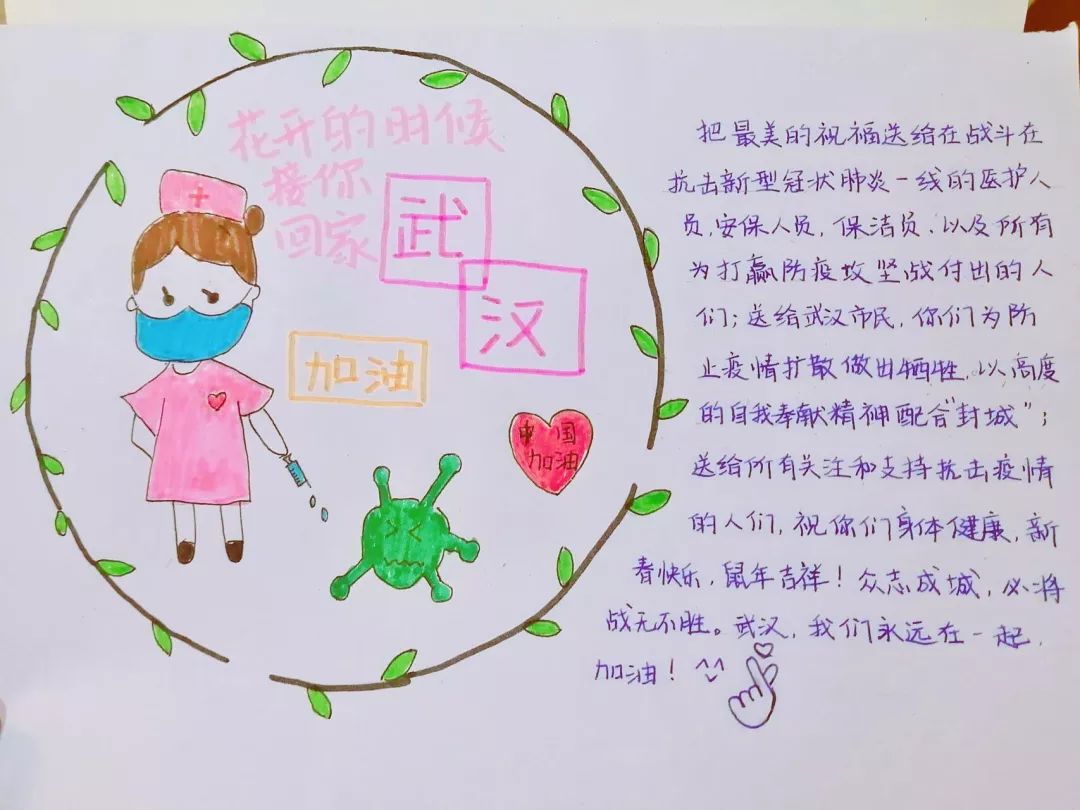 花开的时候
接你
回家
武
汉
加油
中国
加油
把最美的祝福送给在战斗在
抗击新型冠状肺炎一线的医护人
员,安保人员,保洁员、以及所有
为打赢防疫攻坚战付出的人
们;送给武汉市民,你们为防
止疫情扩散做出牺牲,以高度
的自我奉献精神配合"封城";
送给所有关注和支持抗击疫情
的人们,祝你们身体健康,新
春快乐,鼠年吉祥!众志成城,必将
战无不胜。武汉,我们永远在一起,
加油! ^^